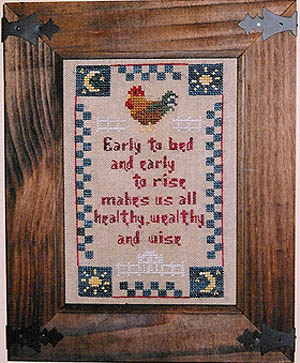 Early to bed
and early
to rise
makes us all
healthy, wealthy
and wise